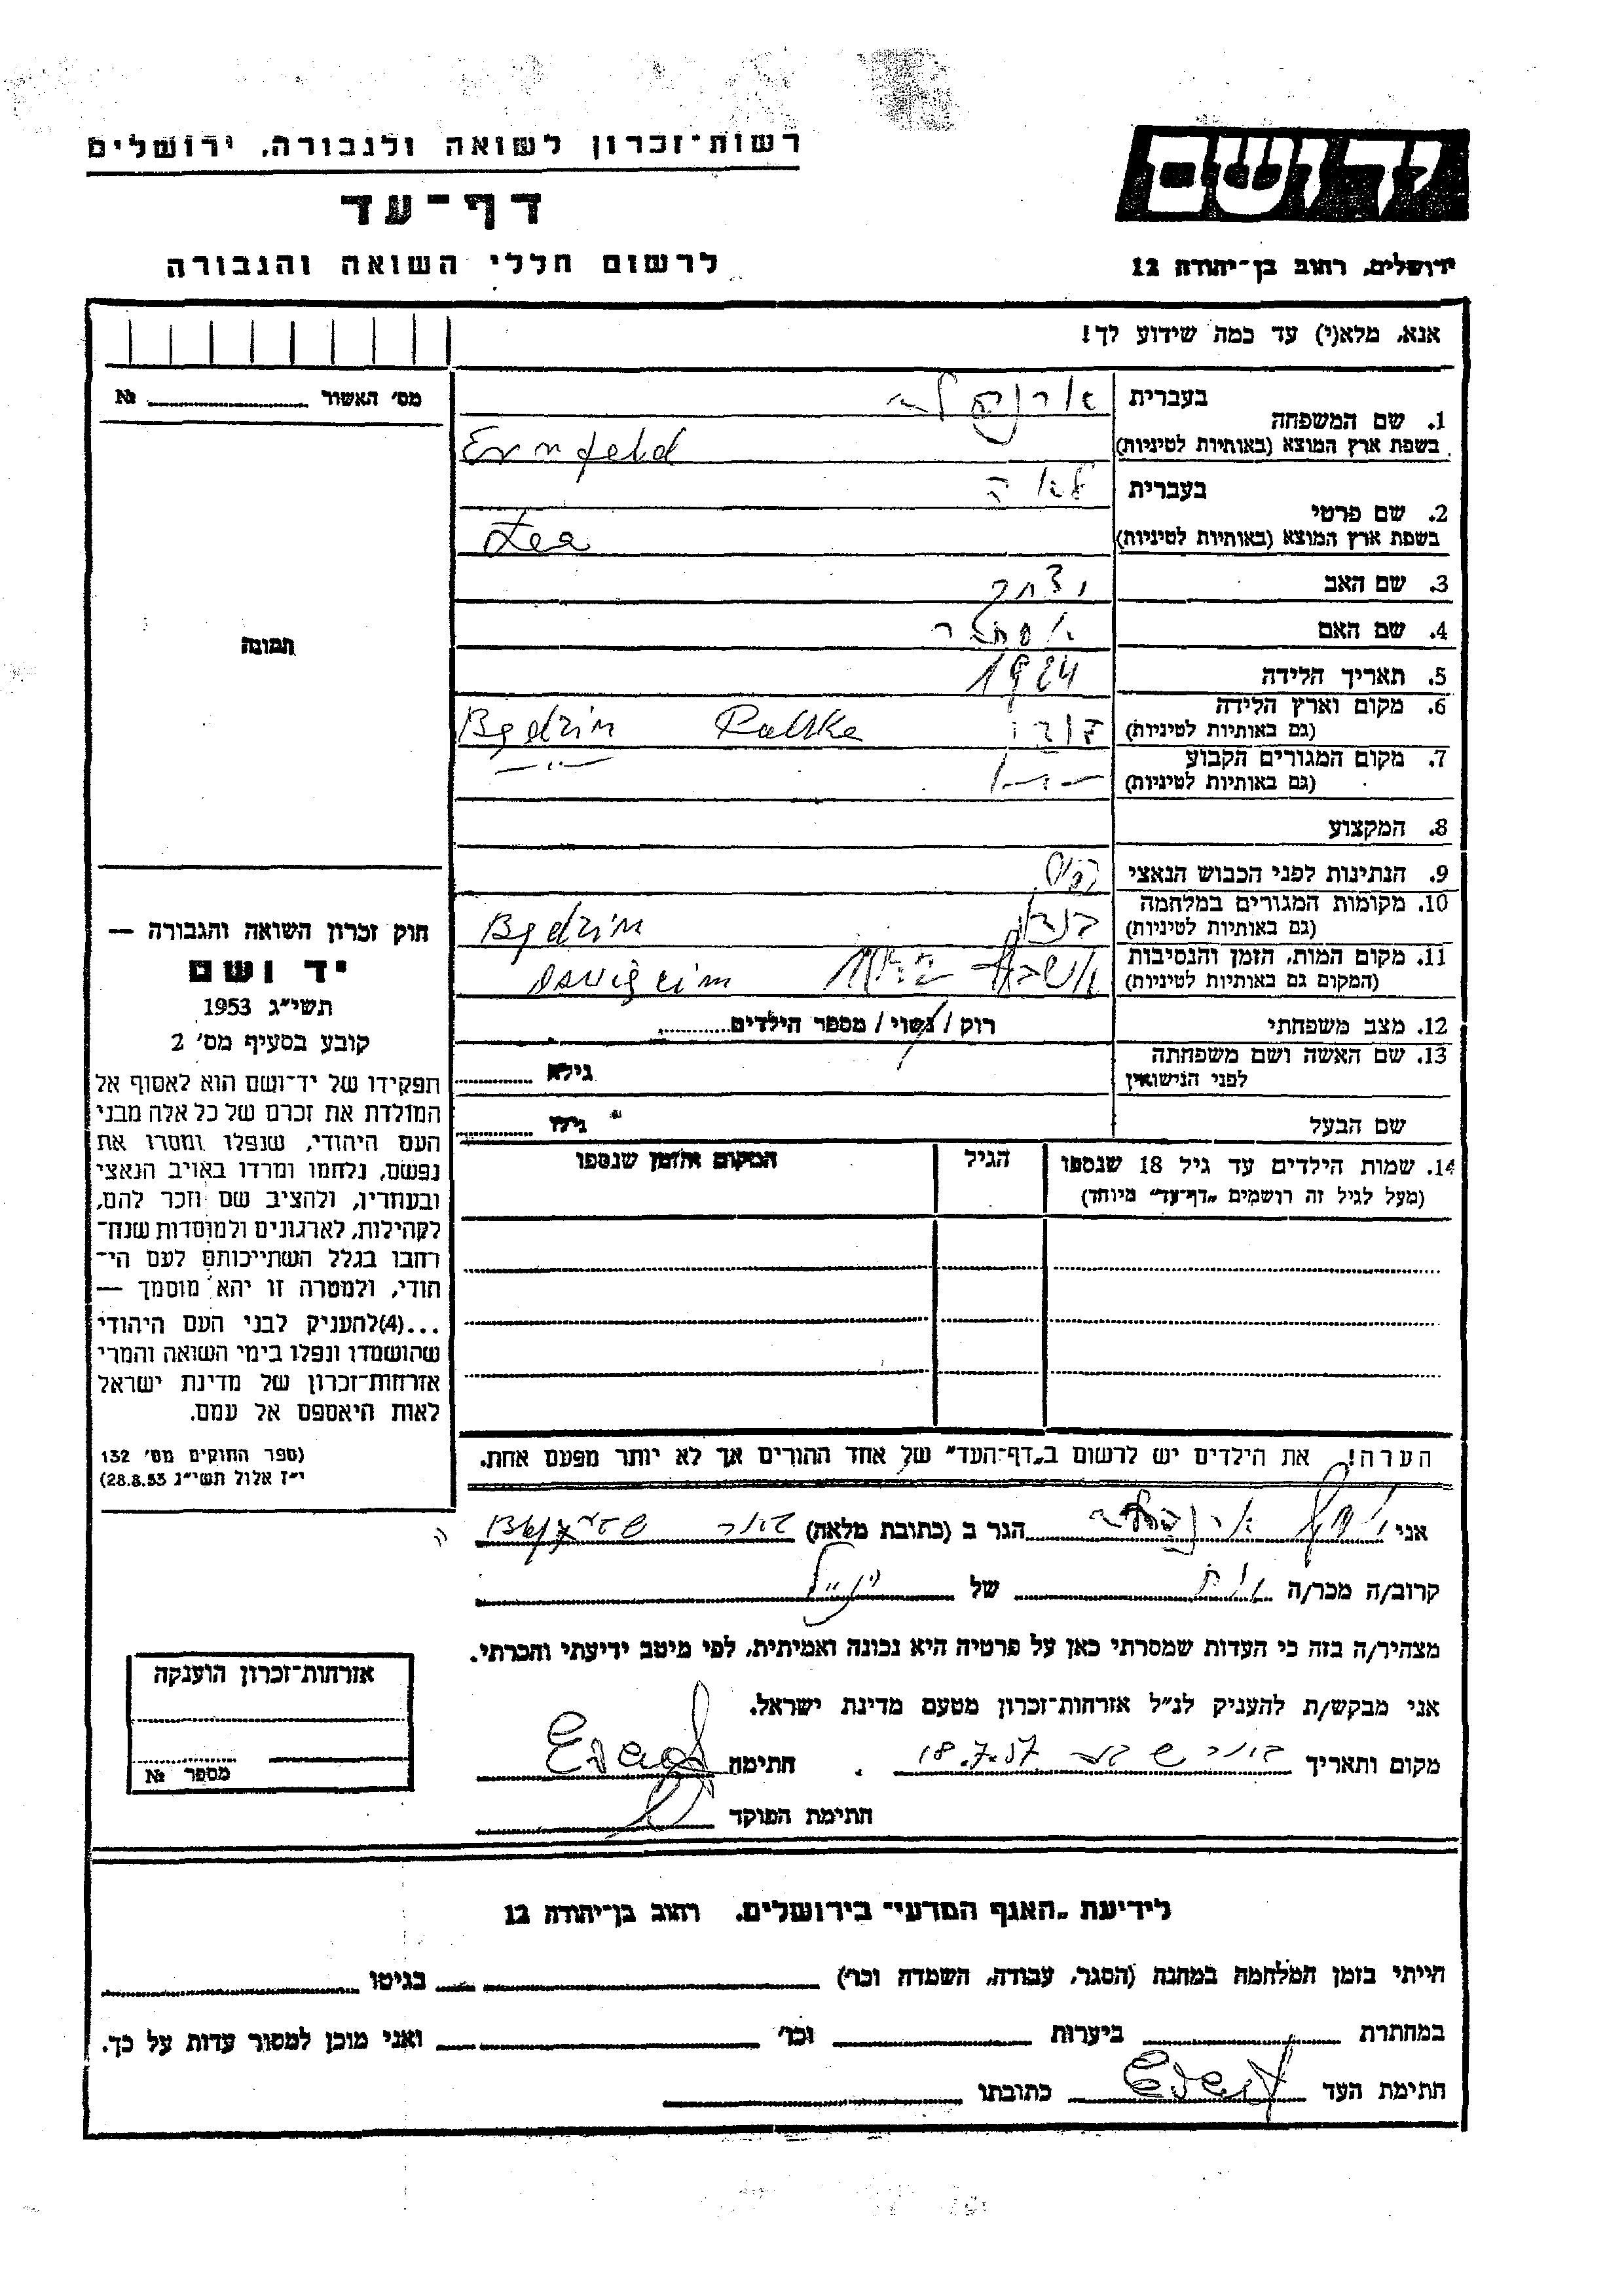 רשות-זכרון לשואה ולגבורה, ירושלים
יד ושם
דף-עד
לרשום חללי השואה והגבורה
ירושלים, רחוב בן-יהודה 12
אנא, מלא(י) עד כמה שידוע לך!
מס' האשור № 
1. שם המשפחה בעברית
בשפת ארץ המוצא (באותיות לטיניות) Ernfeld
2. שם פרטי בעברית לאה
בשפת ארץ המוצא (באותיות לטיניות) Lea
3. שם האב יצחק
4. שם האם אסתר
5. תאריך הלידה 1924
6. מקום וארץ הלידה
(גם באותיות לטיניות) Będzin Polska
7. מקום המגורים הקבוע
(גם באותיות לטיניות) —"—
8. המקצוע
9. הנתינות לפני הכבוש הנאצי
10. מקומות המגורים במלחמה
(גם באותיות לטיניות) Będzin
11. מקום המות, הזמן והנסיבות
(המקום גם באותיות לטיניות)
12. מצב משפחתי רוק / נשוי / מספר הילדים
13. שם האשה ושם משפחתה
לפני הנישואין גילא
שם הבעל גילו
14. שמות הילדים עד גיל 18 שנספו הגיל המקום והזמן שנספו
(מעל לגיל זה רושמים "דף-עד" מיוחד)
תמונה
חוק זכרון השואה והגבורה —
יד ושם
תשי"ג 1953
קובע בסעיף מס' 2
תפקידו של יד-ושם הוא לאסוף אל
המולדת את זכרם של כל אלה מבני
העם היהודי, שנפלו ומסרו את
נפשם, נלחמו ומרדו באויב הנאצי
ובעוזריו, ולהציב שם וזכר להם,
לקהילות, לארגונים ולמוסדות שנח-
רחבו בגלל השתייכותם לעם הי-
הודי, ולמטרה זו יהא מוסמך —
...(4)להעניק לבני העם היהודי
שהושמדו ונפלו בימי השואה והמרי
אזרחות-זכרון של מדינת ישראל
לאות היאספם אל עמם.
(ספר החוקים מס' 132
י"ז אלול תשי"ג 28.8.53)
הערה! את הילדים יש לרשום ב"דף-העד" של אחד ההורים אך לא יותר מפעם אחת.
אני הגר ב (כתובת מלאה) באר שבע
קרוב/ה מכר/ה אח של הנ"ל
מצהיר/ה בזה כי העדות שמסרתי כאן על פרטיה היא נכונה ואמיתית, לפי מיטב ידיעתי והכרתי.
אני מבקש/ת להעניק לנ"ל אזרחות-זכרון מטעם מדינת ישראל.
מקום ותאריך באר שבע 18.7.57 חתימה
חתימת הפוקד
אזרחות-זכרון הוענקה
מספר №
לידיעת "האגף המדעי" בירושלים, רחוב בן-יהודה 12
הייתי בזמן המלחמה במחנה (הסגר, עבודה, השמדה וכר') בגיטו
במחתרת ביערות וכר' ואני מוכן למסור עדות על כך.
חתימת העד כתובתו